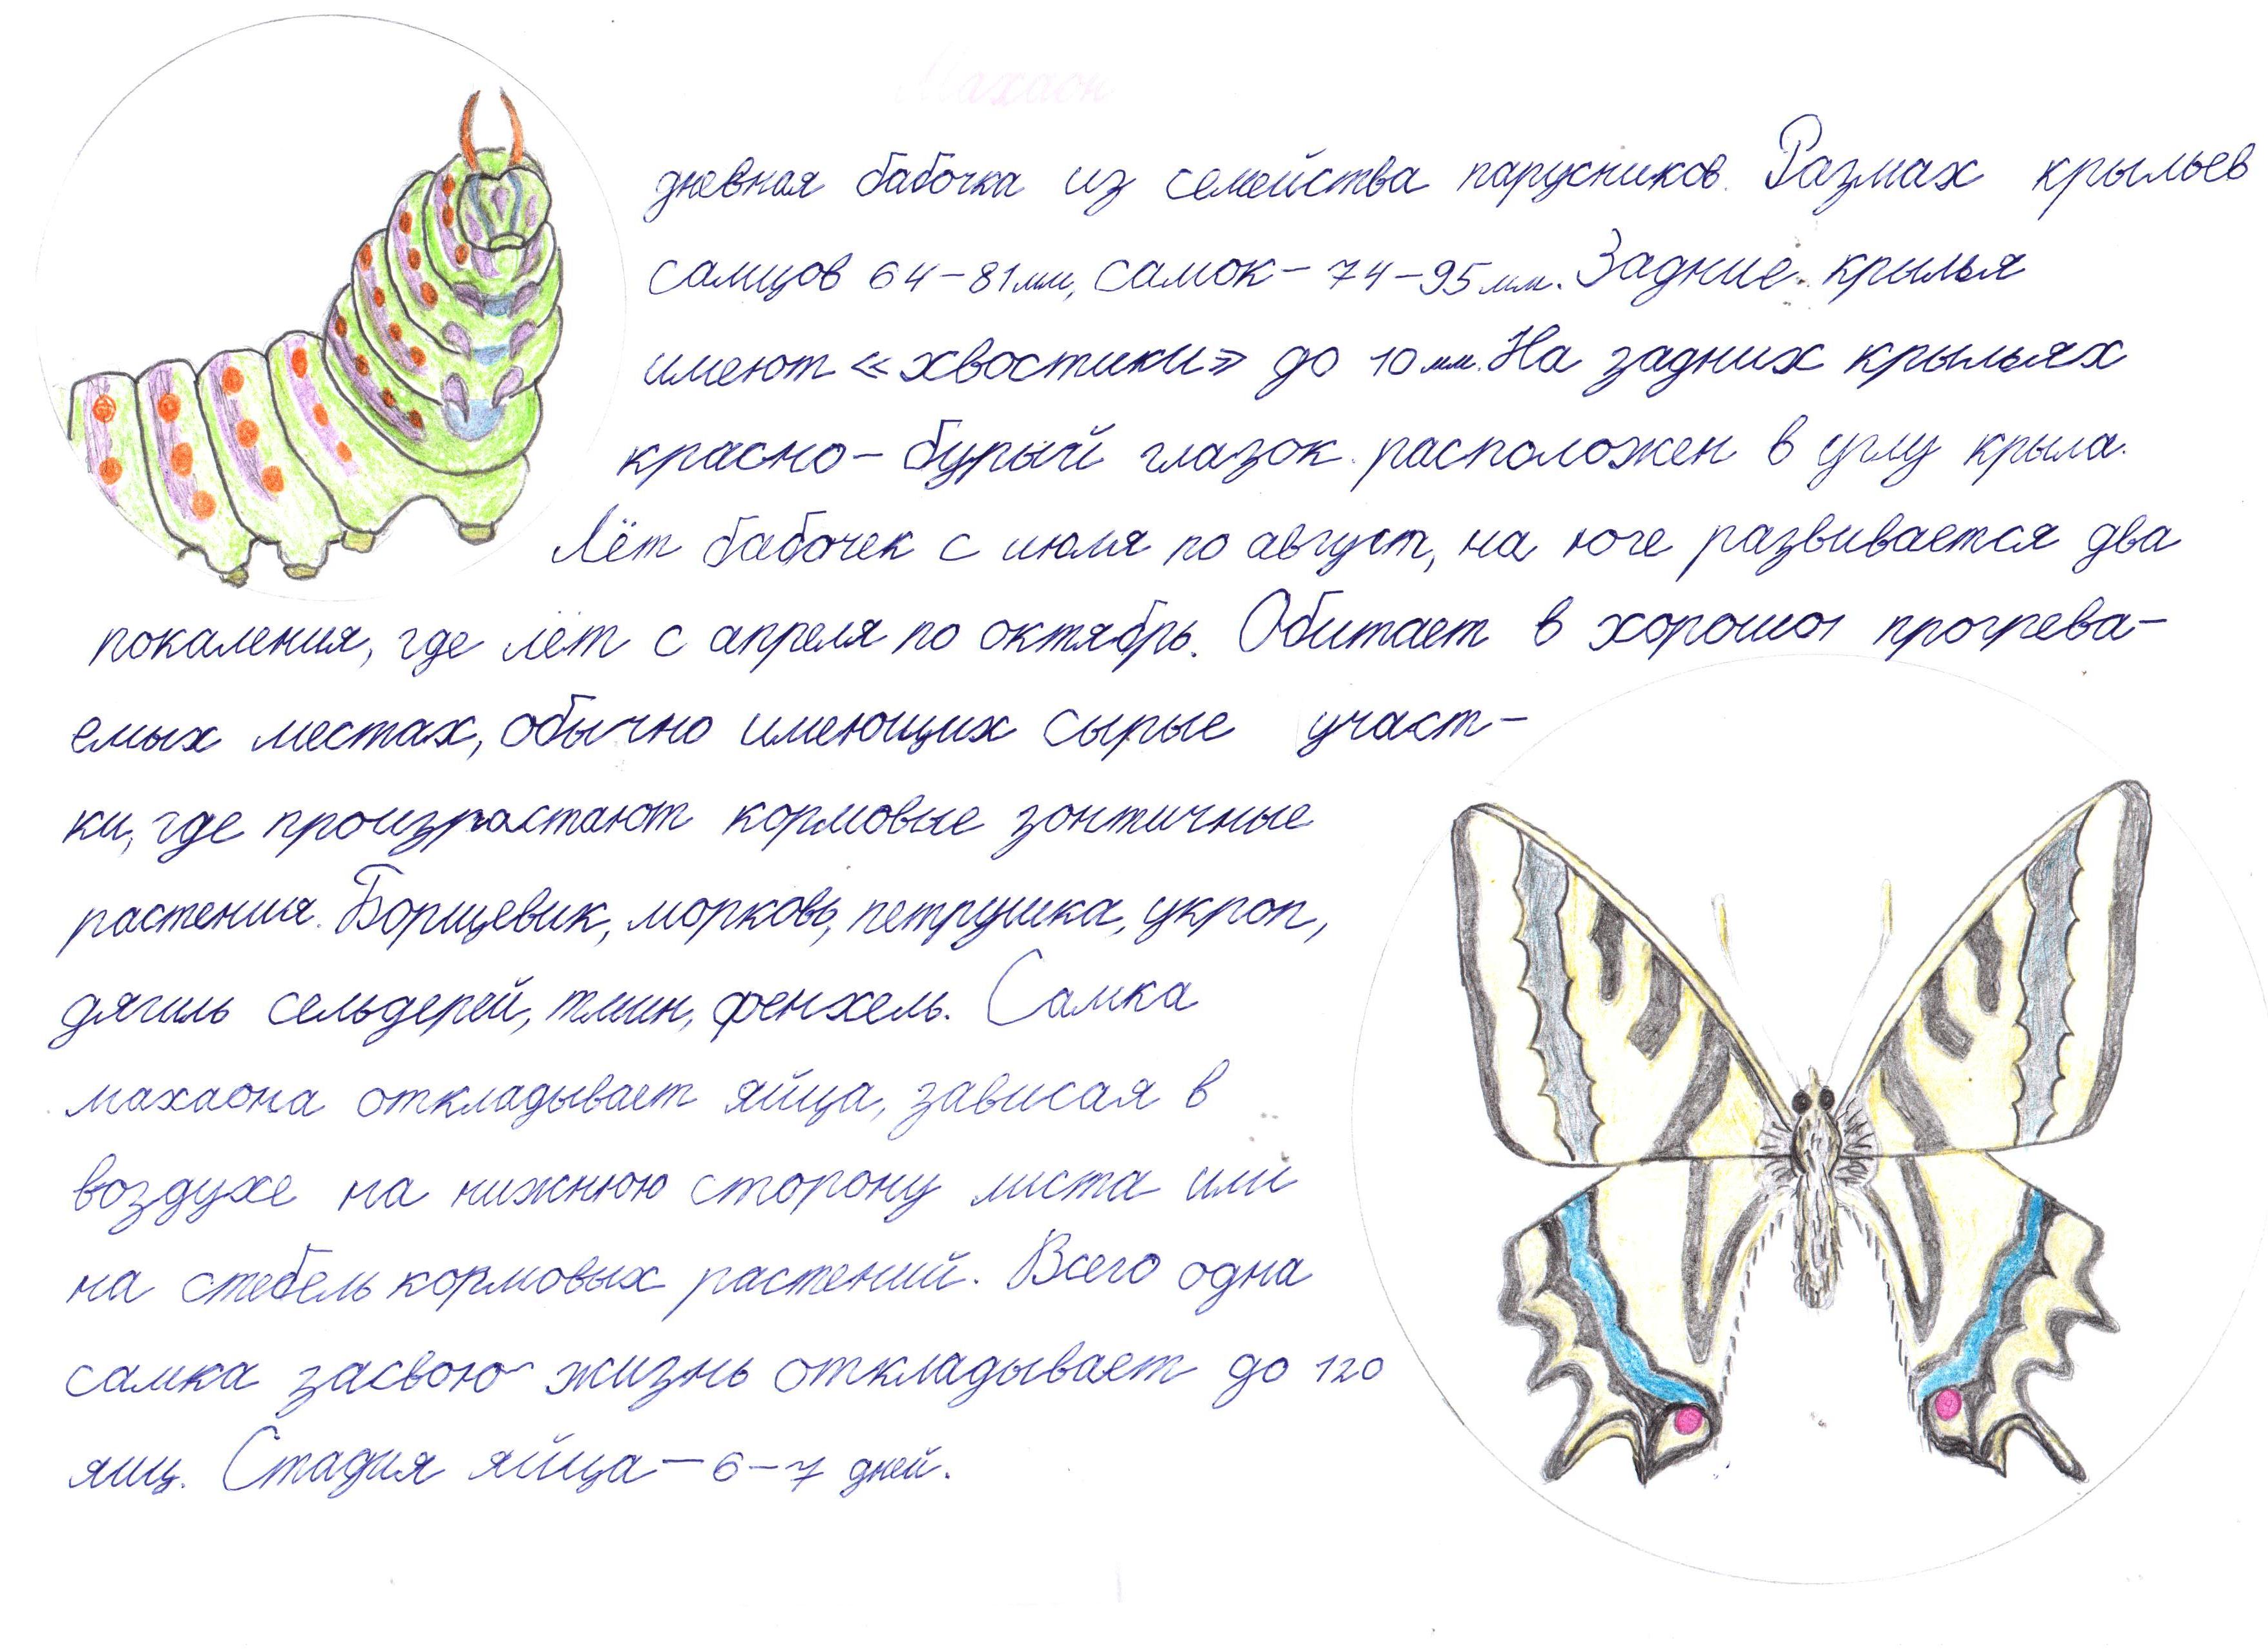 Махаон
дневная бабочка из семейства парусников. Размах крыльев
самцов 64-81мм, самок - 74-95мм. Задние крылья
имеют «хвостики» до 10мм. На задних крыльях
красно-бурый глазок расположен в углу крыла.
Лёт бабочек с июля по август, на юге развивается два
покаления, где лёт с апреля по октябрь. Обитает в хорошо прогрева-
емых местах, обычно имеющих сырые участ-
ки, где произрастают кормовые зонтичные
растения. Борщевик, морковь, петрушка, укроп,
дягиль сельдерей, тмин, фенхель. Самка
махаона откладывает яйца, зависая в
воздухе на нижнюю сторону листа или
на стебель кормовых растений. Всего одна
самка засвою жизнь откладывает до 120
яиц. Стадия яйца - 6-7 дней.